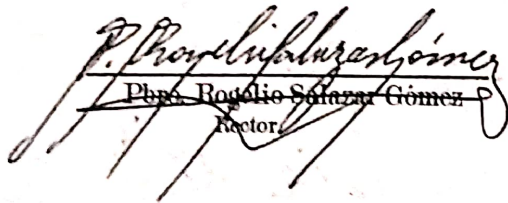 P. Rogelio Salazar Gómez
Pbro. Rogelio Salazar Gómez
Rector.